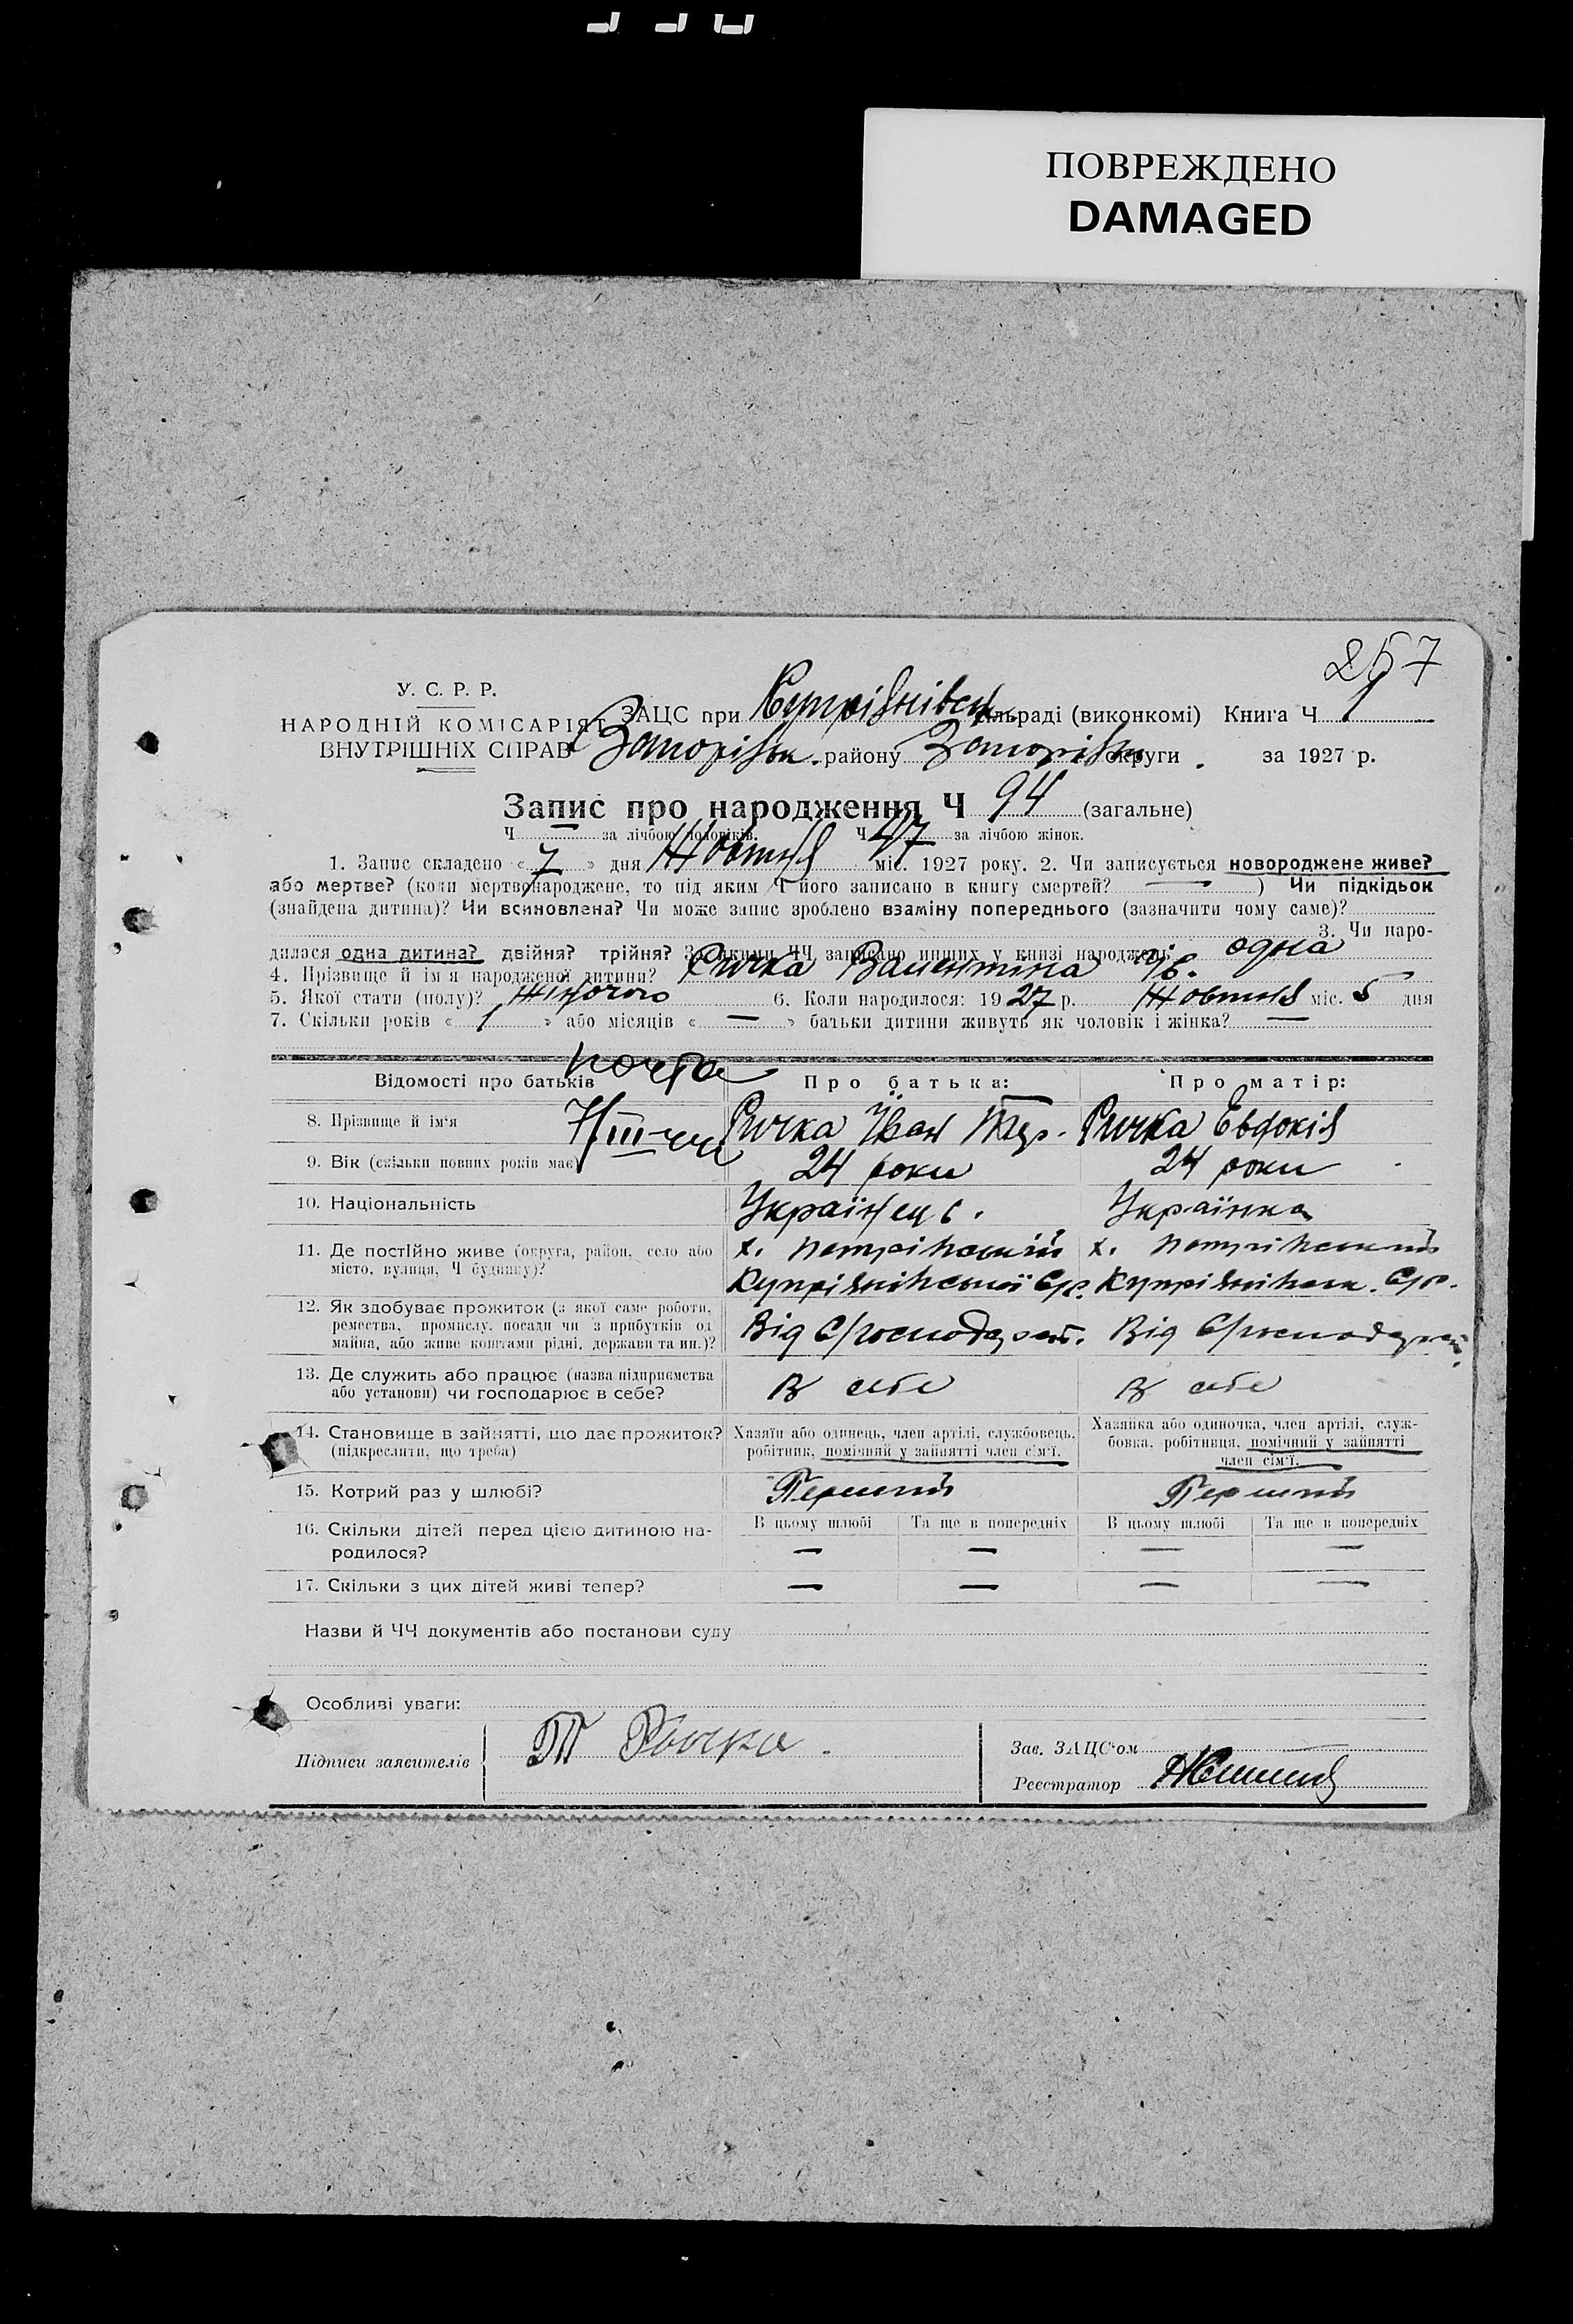 ПОВРЕЖДЕНО
DAMAGED
257
У. С. Р. Р.
НАРОДНІЙ КОМІСАРІЯТ
ВНУТРІШНІХ СПРАВ
ЗАЦС при Купріянівськ. сільраді (виконкомі) Книга Ч 1
Запоріжськ. району Запоріжськ округи за 1927 р.
Запис про народження Ч 94 (загальне)
Ч — за лічбою чоловіків. Ч 47 за лічбою жінок.
1. Запис складено «7» дня Жовтня міс. 1927 року. 2. Чи записується новороджене живе?
або мертве? (коли мертвонароджене, то під яким Ч його записано в книгу смертей? — ) Чи підкідьок
(знайдена дитина)? Чи всиновлена? Чи може запис зроблено взаміну попереднього (зазначити чому саме)?
3. Чи наро-
дилася одна дитина? двійня? трійня? За якими ЧЧ записано инших у книзі народжень одна
4. Прізвище й ім'я народженої дитини? Ричка Валентина Ів.
5. Якої стати (полу)? Жіночого 6. Коли народилося: 1927 р. Жовтня міс. 5 дня
7. Скільки років «1» або місяців «—» батьки дитини живуть як чоловік і жінка? —
Відомості про батьків Про батька: Про матір:
8. Прізвище й ім'я Ричка Іван Ричка Евдокія
9. Вік (скільки повних років має) 24 роки 24 роки
10. Національність Українець. Українка
11. Де постійно живе (округа, район, село або х. Петрівський х. Петрівський
місто, вулиця, Ч будинку)? Купріянівської С/р. Купріянівськ. С/р.
12. Як здобуває прожиток (з якої саме роботи,
ремества, промислу, посади чи з прибутків од Від С/господарст. Від С/господарст.
майна, або живе коштами рідні, держави та ин.)?
13. Де служить або працює (назва підприємства В себе В себе
або установи) чи господарює в себе?
14. Становище в зайнятті, що дає прожиток? Хазяїн або одинець, член артілі, службовець, Хазяйка або одиночка, член артілі, служ-
(підкреслити, що треба) робітник, помічний у зайнятті член сім'ї. бовка, робітниця, помічний у зайнятті
член сім'ї.
15. Котрий раз у шлюбі? Перший Перший
16. Скільки дітей перед цією дитиною на- В цьому шлюбі Та ще в попередніх В цьому шлюбі Та ще в попередніх
родилося? — — — —
17. Скільки з цих дітей живі тепер? — — — —
Назви й ЧЧ документів або постанови суду
Особливі уваги:
Підписи заявителів Ричка Зав. ЗАЦС'ом
Реєстратор